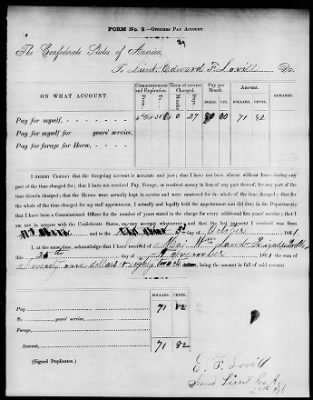 FORM No. 3—OFFICERS PAY ACCOUNT.
The Confederate States of America,
To Lieut. Edward F. Lovill Dr.
ON WHAT ACCOUNT.
Commencement and Expiration
Term of service charged.
Pay per month.
AMOUNT.
REMARKS.
From.
To.
Months.
Days.
DOLLS.
CTS.
DOLLARS.
CTS.
Pay for myself, 0 27 80 00 71 82
Pay for myself for years' service,
Pay for forage for Horse,
I HEREBY CERTIFY that the foregoing account is accurate and just; that I have not been absent without leave during any
part of the time charged for; that I have not received Pay, Forage, or received money in lieu of any part thereof, for any part of
the time therein charged; that the Horses were actually kept in service and were mustered for the whole of the time charged; that
for the whole of the time charged for my staff appointment, I actually and legally held the appointment and did duty in the Department;
that I have been a Commissioned Officer for the number of years stated in the charge for every additional five years' service; that I am
not in arrears to the Confederate States, on any account whatsoever; and that the last payment I received was from
and to the day of October 1861
I, at the same time, acknowledge that I have received of
this day of November 1861 the sum of
seventy one dollars & eighty two cts being the amount in full of said account.
DOLLARS. CTS.
Pay, 71 82
To years' service,
Forage,
Amount, 71 82
(Signed Duplicates.)
E. F. Lovill